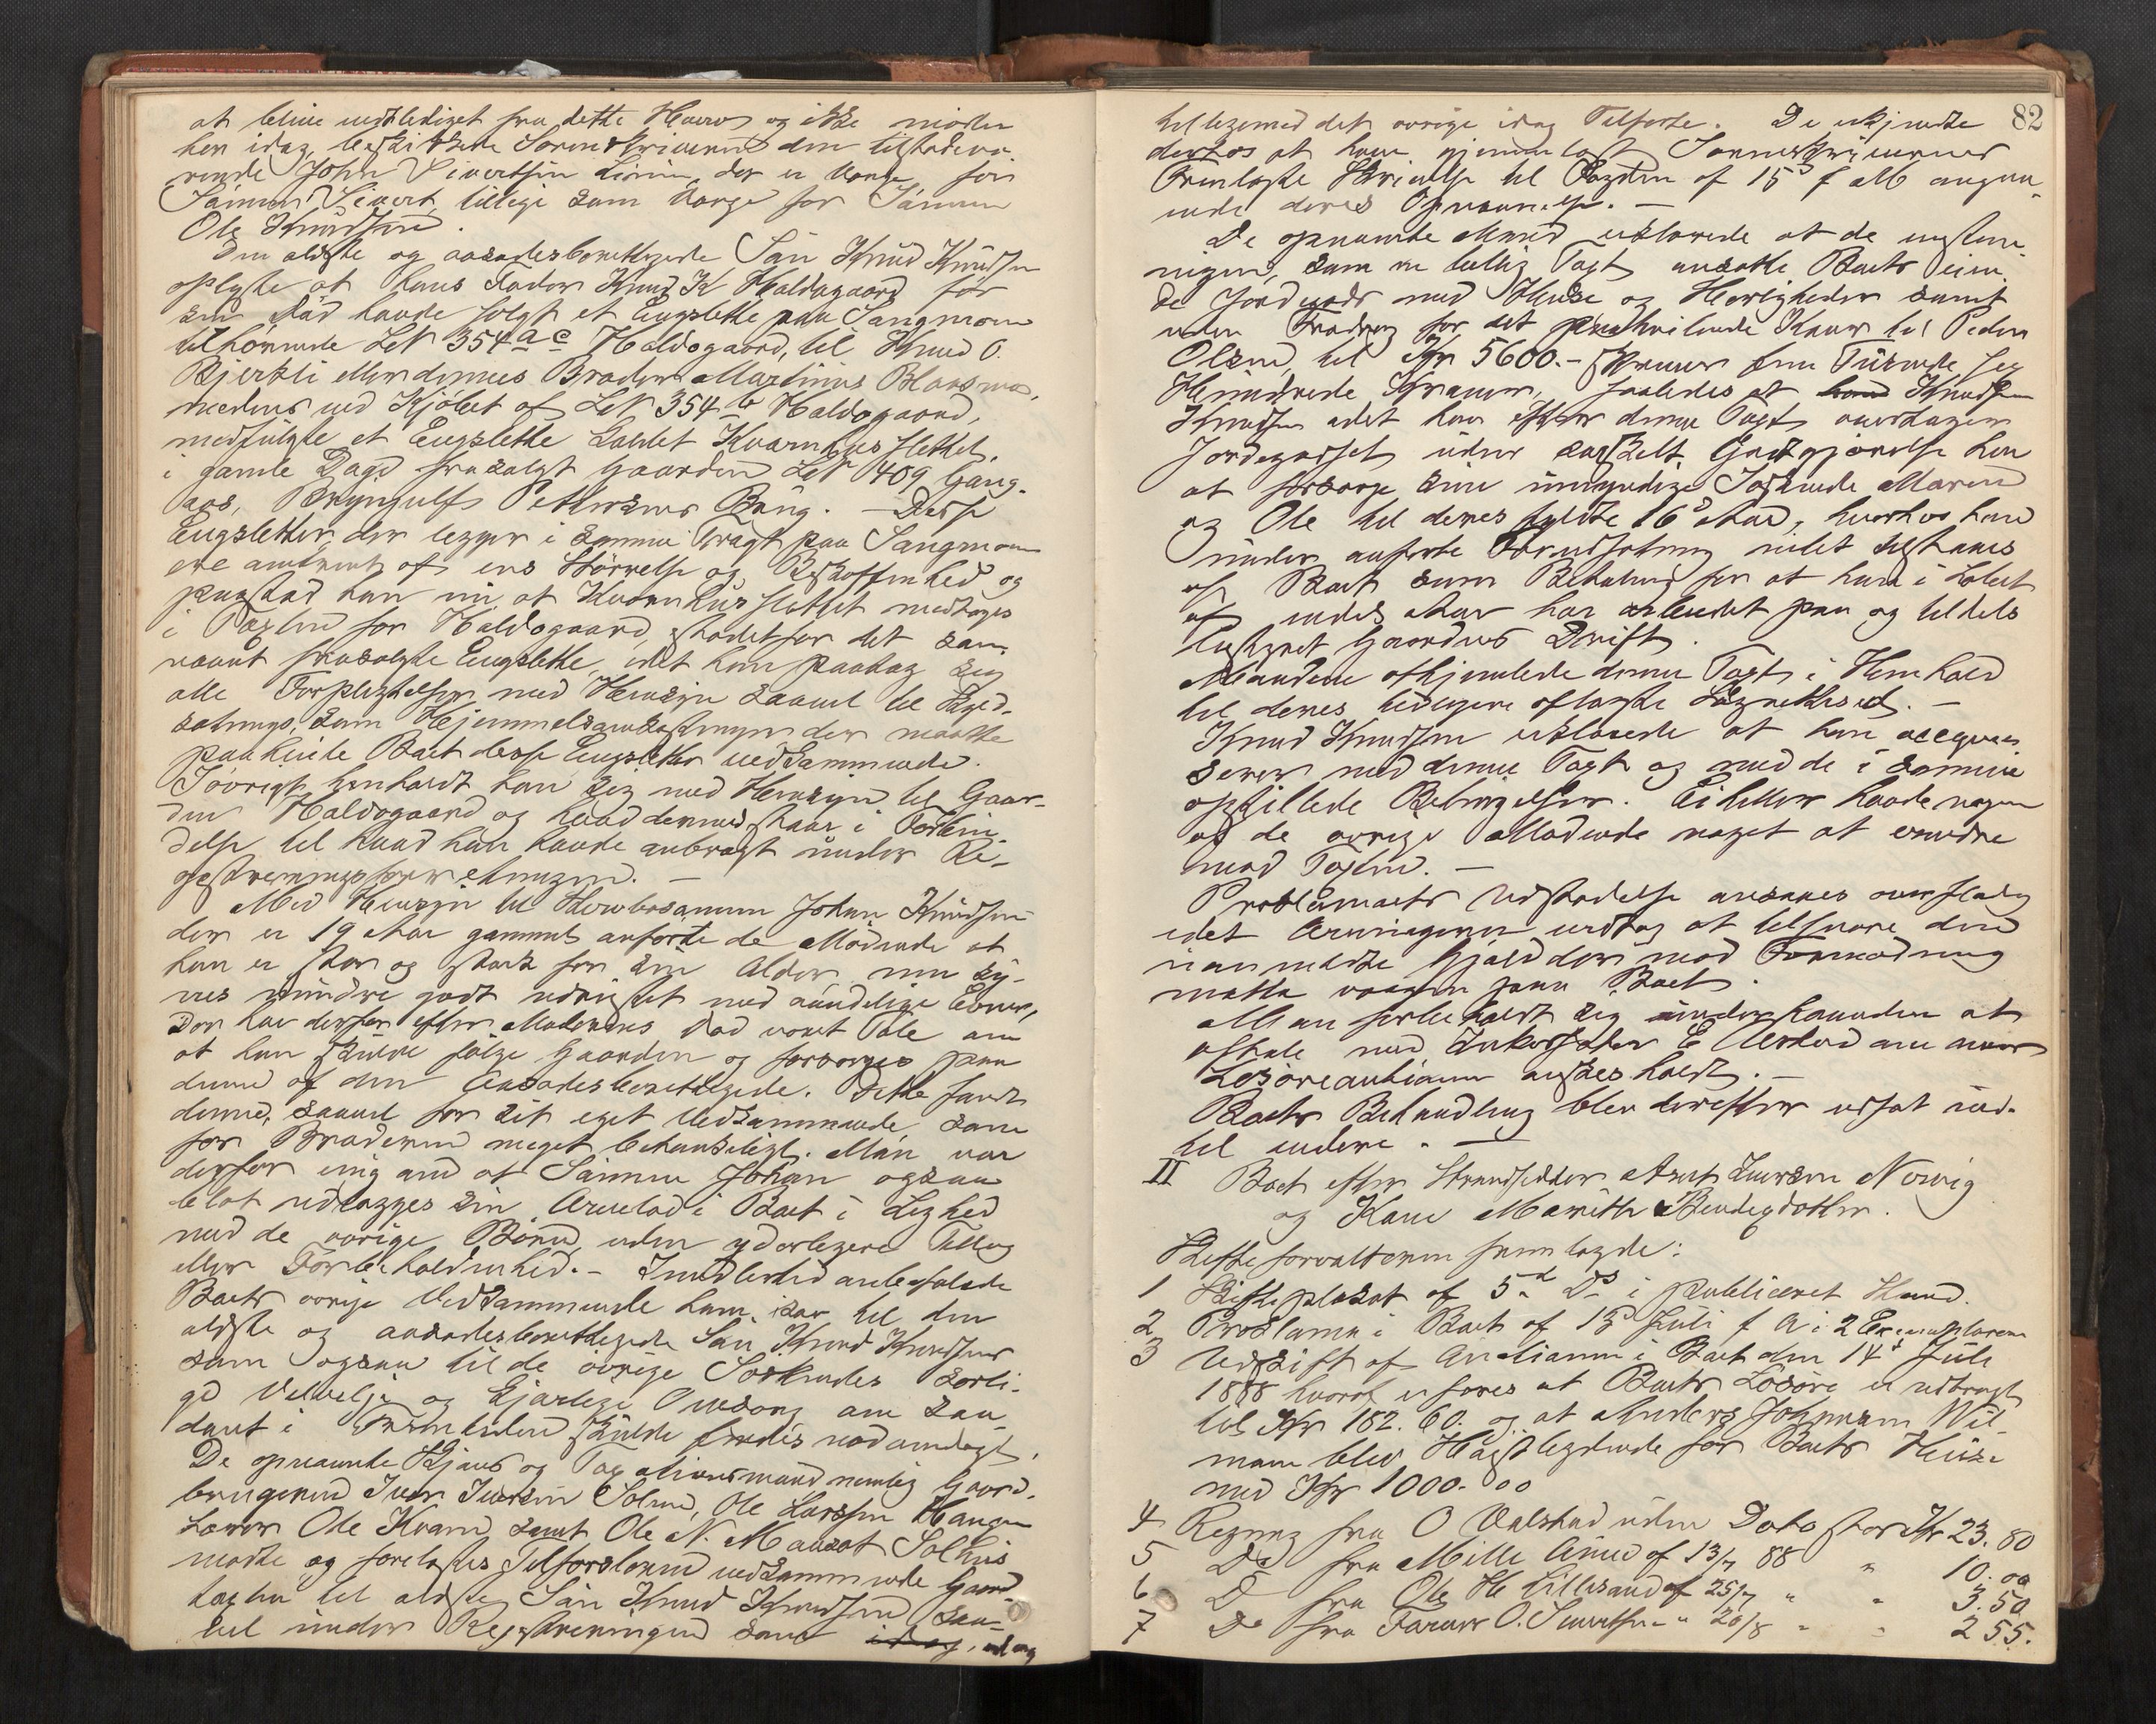 at blive undskyldiget fra dette Hverv og ikke möder
her idag, beskikkede Sorenskriveren den tilstedevæ-
rende John Sivertsen Lium, der er Værge for
Sönnen Sivert, tillige som Værge for Sönnen
Ole Knudsen.
Den ældste og aasædesberettigede Sön Knud Knudsen
oplyste at hans Fader Knud K Haldogaard för
sin Död havde solgt et Engslette paa Sangmoen
tilhörende LN 354 a c Haldogaard, til Knud O.
Bjerkli eller dennes Broder Martinus Blaasmo,
medens ved Kjöbet af LN 354 b Haldogaard,
medfulgte et Engslette kaldet Kvernhusslettet,
i gamle Dage frasolgt Gaarden LN 409 Gang-
aas, Bryngulf Pettersens Brug. – Disse
Engsletter, der ligger i samme Tragt paa Sangmoen
ere omtrent af ens Störrelse og Beskaffenhed og
paastod han nu at Kvernhusslettet medtages
i Taxten for Haldogaard, istedetfor det saa-
nævnt frasolgte Engslette, idet han paatog sig
alle Forpligtelser med Hensyn saavel til Skyld-
sætnings, som Hjemmelsomkostninger der maatte
paahvile Boet disse Engsletter vedkommende.
Iövrigt henholdt han sig med Hensyn til Gaar-
den Haldogaard og hvad dermed staar i Forbin-
delse til hvad han havde anbragt under Re-
gistreringsforretningen. –
Med Hensyn til Sterboesönnen Johan Knudsen
der er 19 Aar gammel anförte de Mödende at
han er stor og stærk for sin Alder, men sy-
nes mindre godt udrustet med aandelige Evner,
Der har derfor efter Moderens Död været Tale om
at han skulde fölge Gaarden og forsörges paa
denne af den Aasædesberettigede. Dette fandt
denne, saavel for sit eget Vedkommende som
for Broderen meget betænkeligt. Man var
derfor enig om at Sönnen Johan ogsaa
blot udlægges sin Arvelod i Boet i Lighed
med de övrige Börn, uden yderligere Tillæg
eller Forbeholdenhed. – Imidlertid anbefalede
Boets övrige Vedkommende ham især til den
ældste og aasædesberettigede Sön Knud Knudsens
som ogsaa til de övrige Södskendes særli-
ge Velvilje og kjærlige Omsorg om saa-
dant i Fremtiden skulde findes nödvendigt.
De opnævnte Skjöns og Taxationsmænd nemlig Gaard-
brugerne Iver Iversen Solem, Ole Larssen Haugen
Lærer Ole Kvam, samt Ole N. Mausæt Solhus
mödte og forelæstes Tilförslerne vedkommende Gaard-
taxten til ældste Sön Knud Knudsen, saa-
vel under Registreringen som idag, ud og
82
tilligemed det övrige idag Tilförte. De erkjendte
derhos at have gjennemlæst Sorenskriverens
fremlagte Skrivelse til Fogden af 15de f M angaa-
ende deres Opnævnelse. –
De opnævnte Mænd erklærede at de enstem-
migen, som en billig Taxt ansatte Boets eien-
de Jordegods med Huse og Herligheder samt
uden Fradrag for det paahvilende Kaar til Peder
Olsen, til Kr 5600.– skriver fem Tusende sex
Hundrede Kroner, saaledes at Knud
Knudsen idet han efter denne Taxt overtager
Jordegodset uden særskilt Godtgjörelse har
at forsörge sine umyndige Södskende Maren
og Ole til deres fyldte 16de Aar, hvorhos han
under anförte Forudsætning intet tilstaaes
af Boet som Betaling for at have i Löbet
af endel Aar har arbeidet paa og tildels
bestyret Gaardens Drift.
Mændene afhjemlede denne Taxt i Henhold
til deres tidligere aflagte Lagrettesed. –
Knud Knudsen erklærede at han acquie-
scerer med denne Taxt og med de i samme
opstillede Betingelser. Ei heller havde nogen
af de övrige Mödende noget at erindre
mod Taxten. –
Proklamaets Udstedelse ansaaes overflödig
idet Arvingerne vedtog at tilsvare den
uanmeldte Gjæld der mod Formodning
maatte vaagne paa Boet.
Man forbeholdt sig underhaanden at
aftale med Inkassator E Aalstad om naar
Lösöreauktionen önskes holdt. –
Boets Behandling blev derefter udsat ind-
til videre. –
II Boet efter Strandsidder Arnt Iversen Norvig
og Kone Marith Bendixdatter.
Skifteforvalteren fremlagde:
1 Skifteplakat af 5te ds i publiceret Stand.
2 Proklama i Boet af 13de Juli f A i 2 Exemplarer
3 Udskrift af Auktionen i Boet den 14de Juli
1888 hvoraf erfares at Boets Lösöre er udbragt
til Kr 182. 60. og at Anders Johnsen Wil-
mann blev Höistbydende for Boets Huse
med Kr 1000.00
4 Regning fra O Aalstad uden Dato stor Kr 23. 80
5 Do fra Mille Aune af 13/7 88 " 10. 00
6 D fra Ole H Lillesand af 25/7 " " 3. 50
7 Do fra Farver O. Sivertsen " 20/8 " " 2 55.